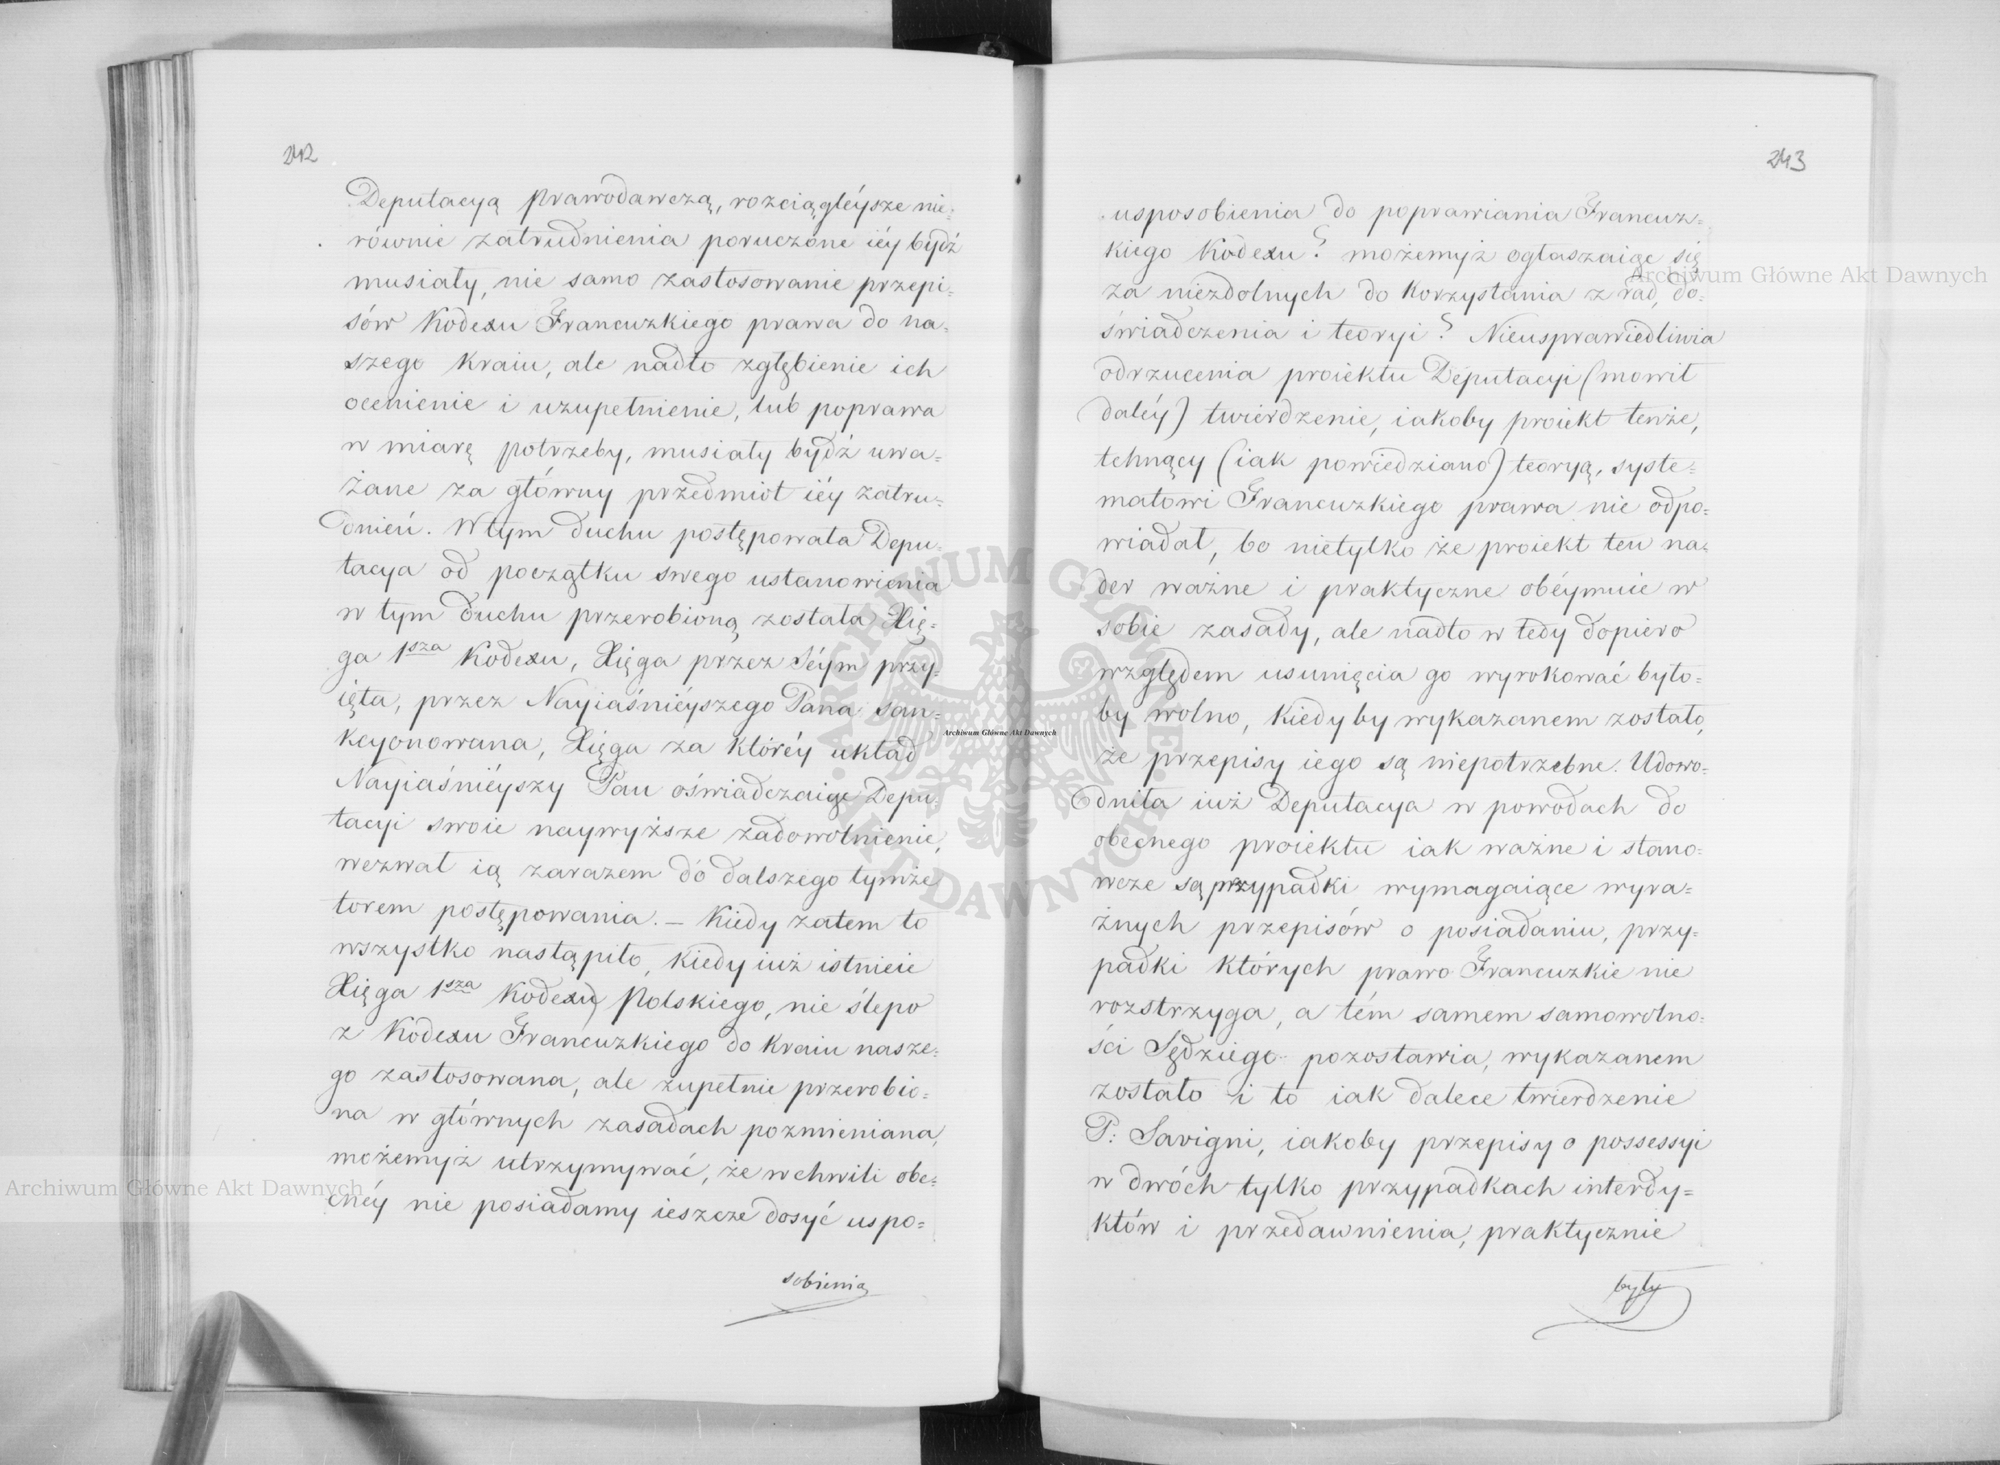 242
Deputacyą Prawodawczą, rozciągléysze nie=
równie zatrudnienia poruczone iéy bydź
musiały, nie samo zastosowanie przepi=
sów Kodexu Francuzkiego prawa do na=
szego Kraiu, ale nadto zgłębienie ich
ocenienie i uzupełnienie, lub poprawa
w miarę potrzeby, musiały bydź uwa=
żane za główny przedmiot iéy zatru=
dnień. W tym duchu postępowała Depu=
tacya od początku swego ustanowienia
w tym duchu przerobioną została Xię=
ga 1sza Kodexu, Xięga przez Séym przy=
ięta, przez Nayiaśniéyszego Pana san=
kcyonowana, Xięga za któréy układ
Nayiaśniéyszy Pan oświadczaiąc Depu=
tacyi swoie naywyższe zadowolnienie,
wezwał ią zarazem do dalszego tymże
torem postępowania. — Kiedy zatem to
wszystko nastąpiło, kiedy iuż istnieie
Xięga 1sza Kodexu Polskiego, nie ślepo
z Kodexu Francuzkiego do Kraiu nasze=
go zastosowana, ale zupełnie przerobio=
na w głównych zasadach pozmieniana,
możemyż utrzymywać, że w chwili obe=
cnéy nie posiadamy ieszcze dosyć uspo=
sobienia
243
usposobienia do poprawiania Francuz=
kiego Kodexu? możemyż ogłaszaiąc się
za niezdolnych do korzystania z rad, do=
świadczenia i teoryi? Nieusprawiedliwia
odrzucenia proiektu Deputacyi (mowił
daléy) twierdzenie, iakoby proiekt tenże,
tchnący (iak powiedziano) teoryą, syste=
matowi Francuzkiego prawa nie odpo=
wiadał, bo nietylko że proiekt ten na=
der ważne i praktyczne obéymuie w
sobie zasady, ale nadto w tedy dopiero
względem usunięcia go wyrokować było=
by wolno, kiedyby wykazanem zostało,
że przepisy iego są niepotrzebne. Udowo=
dniła iuż Deputacya w powodach do
obecnego proiektu iak ważne i stano=
wcze są przypadki wymagaiące wyra=
źnych przepisów o posiadaniu, przy=
padki których prawo Francuzkie nie
rozstrzyga, a tém samem samowolno=
ści Sędziego pozostawia, wykazanem
zostało i to iak dalece twierdzenie
P: Savigni, iakoby przepisy o possessyi
w dwóch tylko przypadkach interdy=
któw i przedawnienia, praktycznie
były
Archiwum Główne Akt Dawnych
Archiwum Główne Akt Dawnych
Archiwum Główne Akt Dawnych
ARCHIWUM GŁÓWNE AKT DAWNYCH